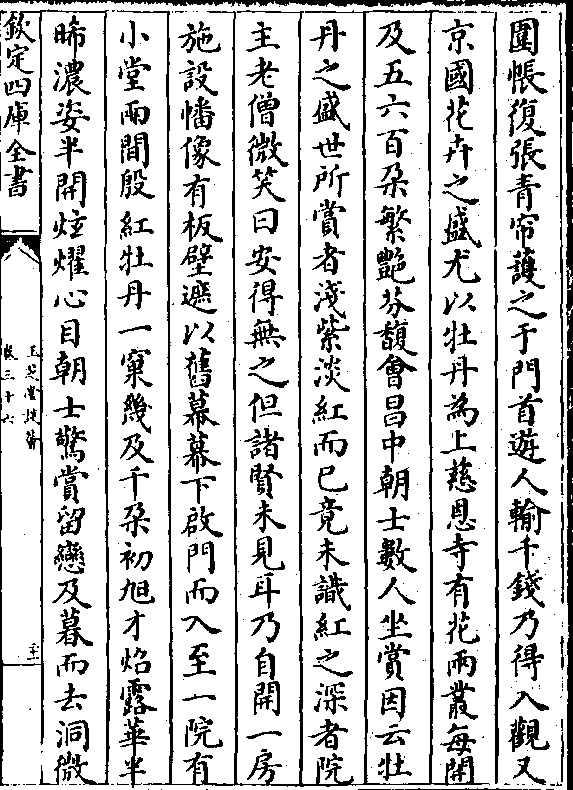 圍帳復張青帟護之于門首遊人輸千錢乃得入觀又
京國花卉之盛尤以牡丹為上慈恩寺有花兩叢每開
及五六百朵繁艷芬馥會昌中朝士數人坐賞因云牡
丹之盛世所賞者淺紫淡紅而已竟未識紅之深者院
主老僧微笑曰安得無之但諸賢未見耳乃自開一房
施設幡像有板壁遮以舊幕幕下啟門而入至一院有
小堂兩間殷紅牡丹一窠幾及千朵初旭才炤露華半
晞濃姿半開炫耀心目朝士驚賞留戀及暮而去洞微
欽定四庫全書
玉芝堂談薈
卷三十六